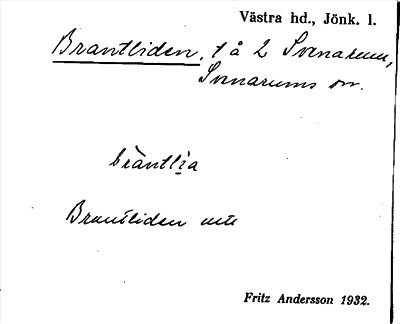 Västra hd., Jönk. l.
Brantliden, 1 å 2 Svenarum,
Svenarums sn.
bràntlia
Brantliden
Fritz Andersson 1932.